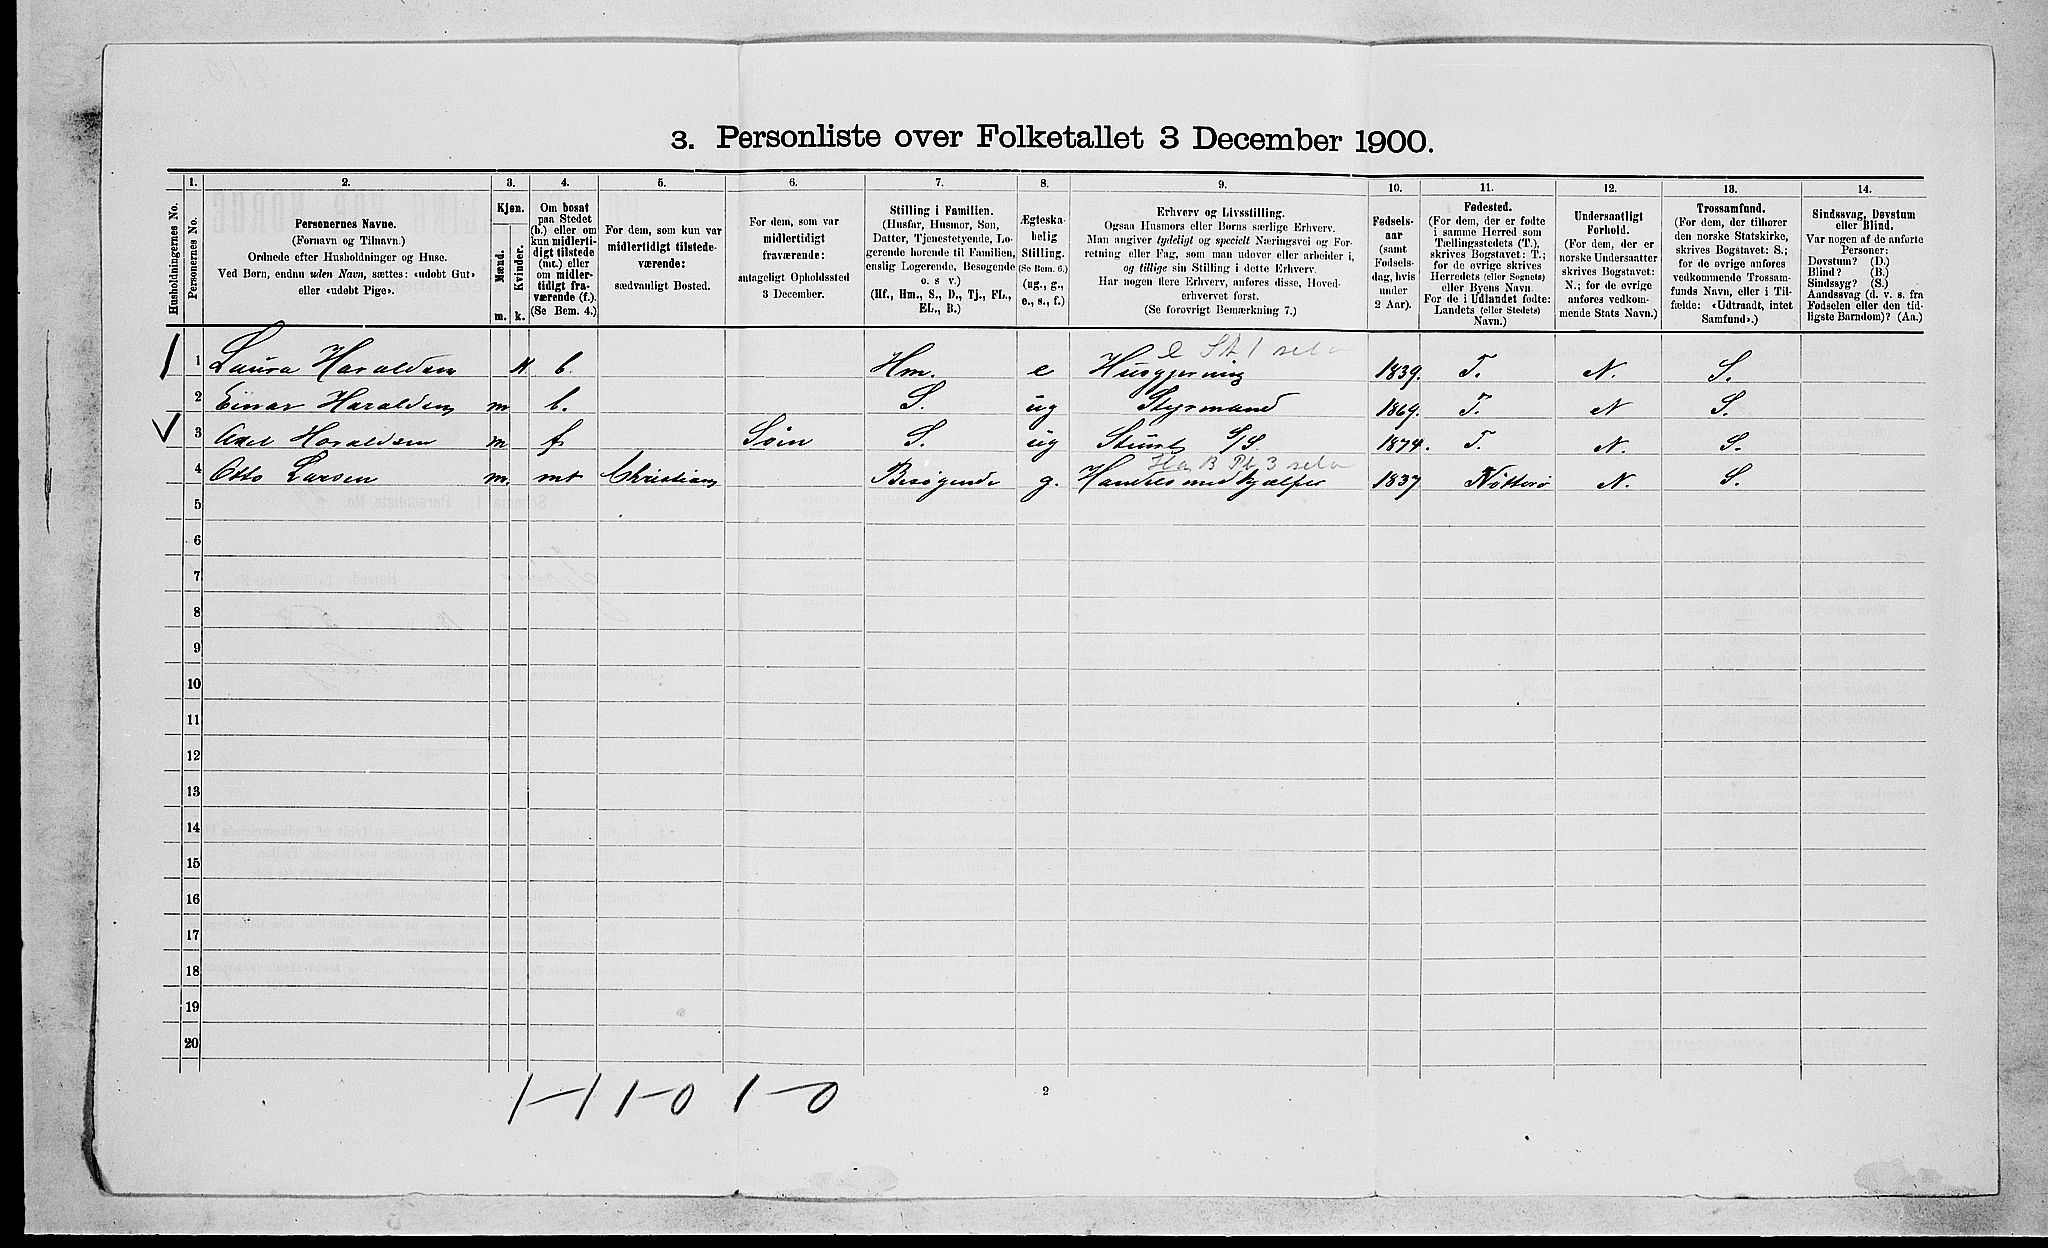 3. Personliste over Folketallet 3 December 1900.
1. 2. 3. 4. 5. 6. 7. 8. 9. 10. 11. 12. 13. 14.
Husholdningernes No.
Personernes No.
Personernes Navne.
(Fornavn og Tilnavn.)
Ordnede efter Husholdninger og Huse.
Ved Børn, endnu uden Navn, sættes: «udøbt Gut»
eller «udøbt Pige».
Kjøn.
Mænd.
Kvinder.
m. k.
Om bosat
paa Stedet
(b.) eller om
kun midlerti-
digt tilstede
(mt.) eller
om midler-
tidigt fra-
værende (f.).
(Se Bem. 4.)
For dem, som kun var
midlertidigt tilstede-
værende:
sædvanligt Bosted.
For dem, som var
midlertidigt
fraværende:
antageligt Opholdssted
3 December.
Stilling i Familien.
(Husfar, Husmor, Søn,
Datter, Tjenestetyende, Lo-
gerende hørende til Familien,
enslig Logerende, Besøgende
o. s v.)
(Hf., Hm., S., D., Tj., FL.,
EL., B.)
Ægteska-
belig
Stilling.
(Se Bem. 6.)
(ug., g.,
e., s., f.)
Erhverv og Livsstilling.
Ogsaa Husmors eller Børns særlige Erhverv.
Man angiver tydeligt og specielt Næringsvei og For-
retning eller Fag, som man udøver eller arbeider i,
og tillige sin Stilling i dette Erhverv.
Har nogen flere Erhverv, anføres disse, Hoved-
erhvervet først.
(Se forøvrigt Bemærkning 7.)
Fødsels-
aar
(samt
Fødsels-
dag, hvis
under
2 Aar).
Fødested.
(For dem, der er fødte
i samme Herred som
Tællingsstedets (T.),
skrives Bogstavet: T.;
for de øvrige skrives
Herredets (eller Sognets)
eller Byens Navn.
For de i Udlandet fødte:
Landets (eller Stedets)
Navn.)
Undersaatligt
Forhold.
(For dem, der er
norske Undersaatter
skrives Bogstavet:
N.; for de øvrige
anføres vedkom-
mende Stats Navn.)
Trossamfund.
(For dem, der tilhører
den norske Statskirke,
skrives Bogstavet: S.;
for de øvrige anføres
vedkommende Trossam-
funds Navn, eller i Til-
fælde: «Udtraadt, intet
Samfund».)
Sindssvag, Døvstum
eller Blind.
Var nogen af de anførte
Personer:
Døvstum? (D.)
Blind? (B.)
Sindssyg? (S.)
Aandssvag (d. v. s. fra
Fødselen eller den tid-
ligste Barndom)? (Aa.)
1 Laura Haraldsen k b. Hm. e Husgjerning 1839. T. N. S.
2 Einar Haraldsen m b. S. ug Styrmand 1869. T. N S.
3 Axel Haraldsen m f Søen S. ug Stuert S/S. 1874. T. N. S.
4 Otto Larsen m. mt Christiania Besøgende g. Handelsmedhjælper 1837 Nøtterø N. S.
5
6
7
8
9
10
11
12
13
14
15
16
17
18
19
20
1-1 1-0 1-0
2